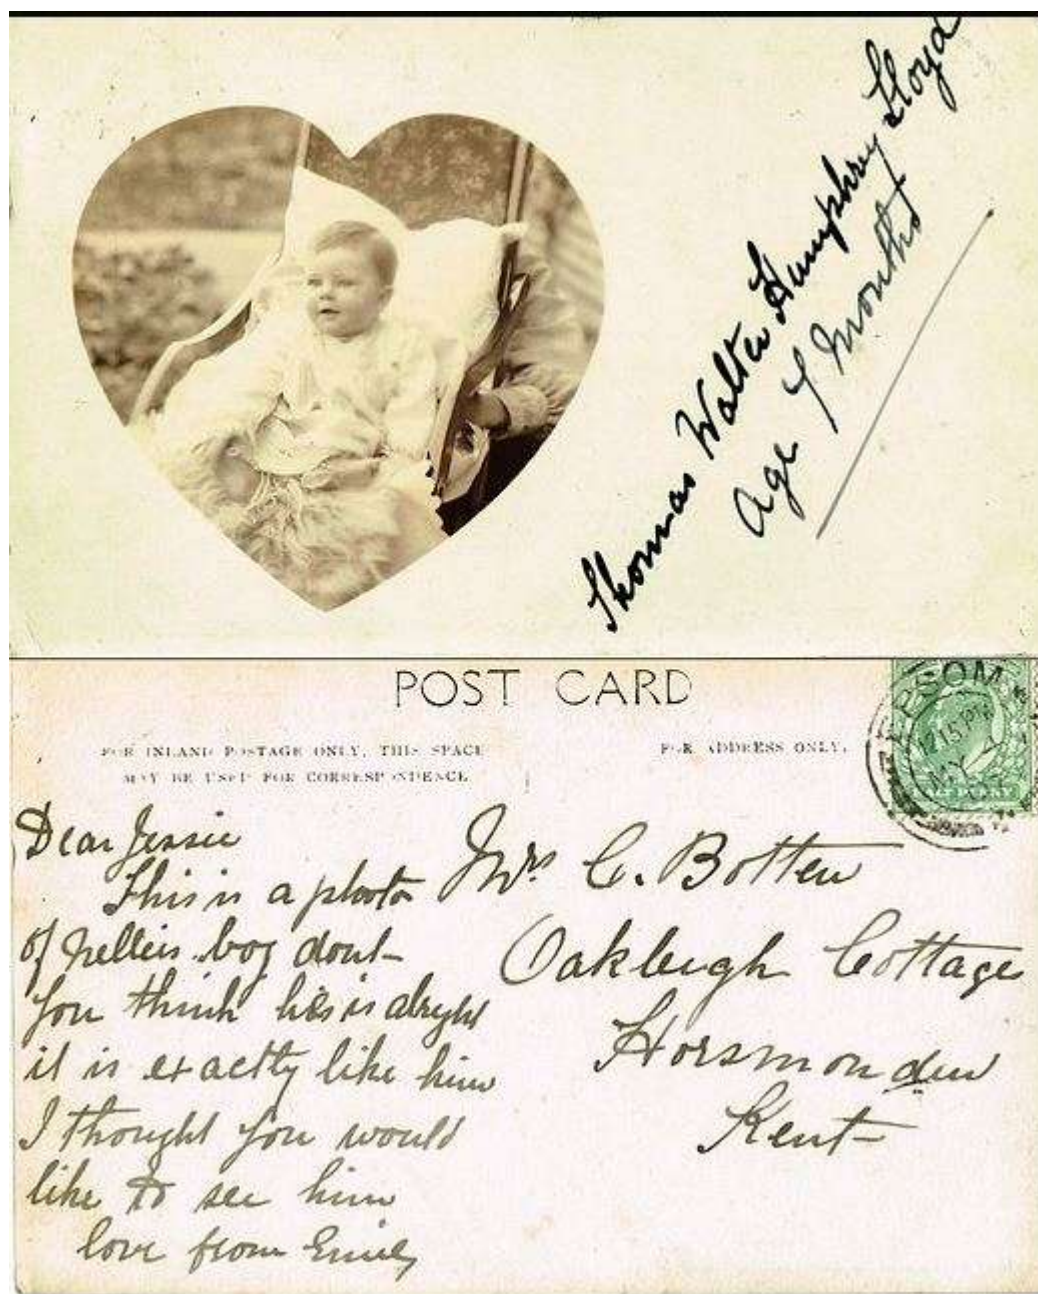 Thomas Walter Humphrey Lloyd
Age 7 Months
POST CARD
FOR INLAND POSTAGE ONLY, THIS SPACE
MAY BE USED FOR CORRESPONDENCE
FOR ADDRESS ONLY.
EPSOM
MY
Dear Jessie
This is a photo
of Nellies boy dont
you think hes is alryht
it is exactly like him
I thought you would
like to see him
love from Emily
Mrs C. Botten
Oakleigh Cottage
Horsmonden
Kent